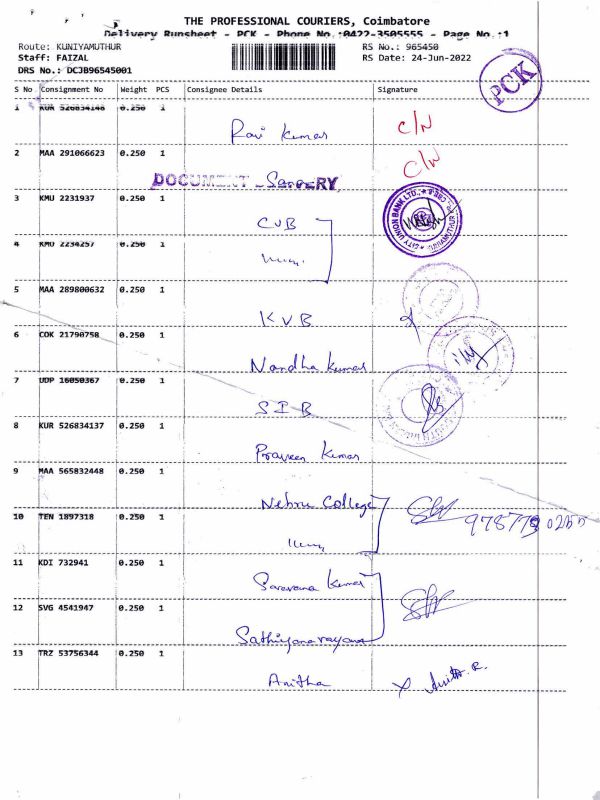 THE PROFESSIONAL COURIERS, Coimbatore
Delivery Runsheet - PCK - Phone No.:0422-3505555 - Page No.:1
Route: KUNIYAMUTHUR RS No.: 965450
Staff: FAIZAL RS Date: 24-Jun-2022
DRS No.: DCJB96545001
PCK
S No Consignment No Weight PCS Consignee Details Signature
1 KUR 526834148 0.250 1
Ravi Kumar C/N
2 MAA 291066623 0.250 1 C/N
DOCUMENT
3 KMU 2231937 0.250 1
CUB CITY UNION BANK LTD.,
4 KMU 2234257 0.250 1
5 MAA 289800632 0.250 1
KVB
6 COK 21790758 0.250 1
Nandha Kumar
7 UDP 16050367 0.250 1
SIB
8 KUR 526834137 0.250 1
Praveen Kumar
9 MAA 565832448 0.250 1
Nehru College
10 TEN 1897318 0.250 1
11 KDI 732941 0.250 1
Saravana Kumar
12 SVG 4541947 0.250 1
Sathiyanarayana
13 TRZ 53756344 0.250 1
Anitha Anitha. R.